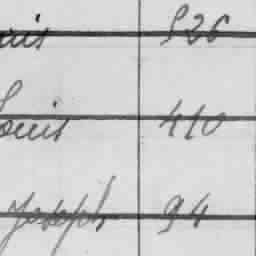 826
Louis 410
Joseph 94